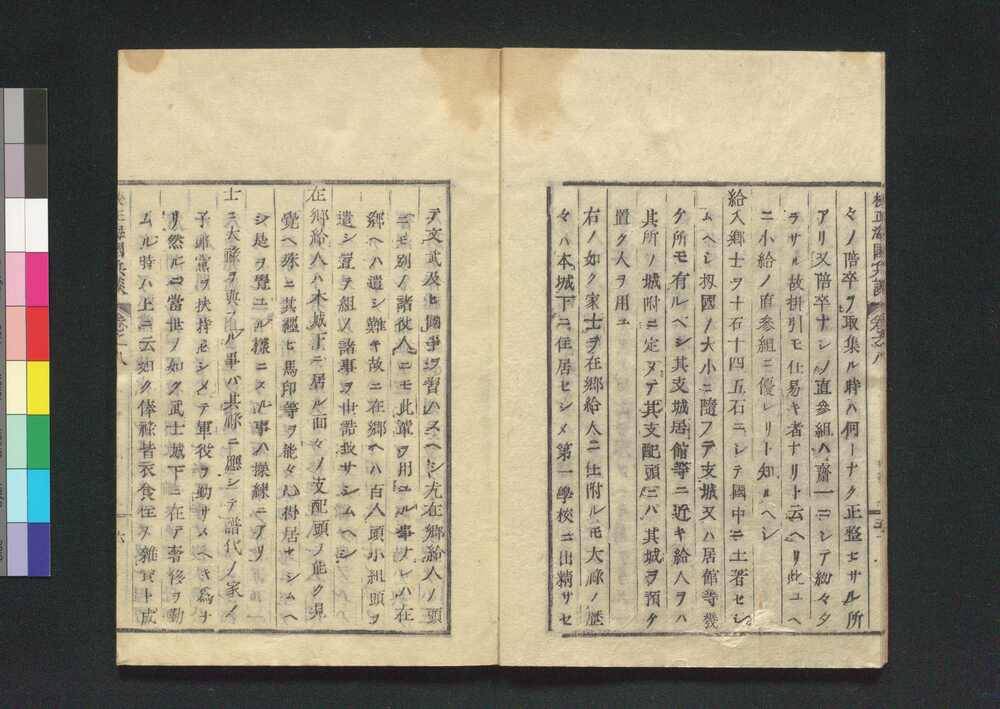 校正海國兵談 卷之八
々ノ陪卒ヲ取集ル時ハ何トナク正整セサル所
アリ又陪卒ナシノ直參組ハ齋一ニシテ紛々タ
ラサル故掛引モ仕易キ者ナリト云ヘリ此ユヘ
ニ小給ノ直參組ニ優レリト知ルヘシ
給人郷士ヲ十石十四五石ニシテ國中ニ土著セシ
ムヘシ扨國ノ大小ニ隨フテ支城又ハ居館等幾
ケ所モ有ルベシ其支城居館等ニ近キ給人ヲハ
其所ノ城附ニ定メテ其支配頭ニハ其城ヲ預ケ
置ク人ヲ用ユ
右ノ如ク家士ヲ在郷給人ニ仕附ルモ大祿ノ歴
々ハ本城下ニ住居セシメ第一學校ニ出精サセ
テ文武及ヒ國事ヲ習ハスヘシ尤在郷給人ノ頭
ニモ別ノ諸役人ニモ此輩ヲ用ユル事ナレハ在
郷ヘハ遣シ難キ故ニ在郷ヘハ百人頭小組頭ヲ
遣シ置テ組ノ諸事ヲ世話致サシムヘシ
在郷給人ハ本城下ニ居ル面々ノ支配頭ノ能ク見
覺ヘ殊ニ其纏ヒ馬印等ヲ能々心得居セシムヘ
シ是ヲ覺ユル樣ニスル事ハ操練ニアリ
士ニ大祿ヲ與フル事ハ其祿ニ應シテ譜代ノ家ノ
子郎黨ヲ扶持セシメテ軍役ヲ勤サスヘキ爲ナ
リ然ルニ當世ノ如ク武士城下ニ在テ奢侈ヲ勤
ムル時ハ上ニ云如ク俸祿皆衣食住ヲ雜費ト成
校正海國兵談 卷之八 六